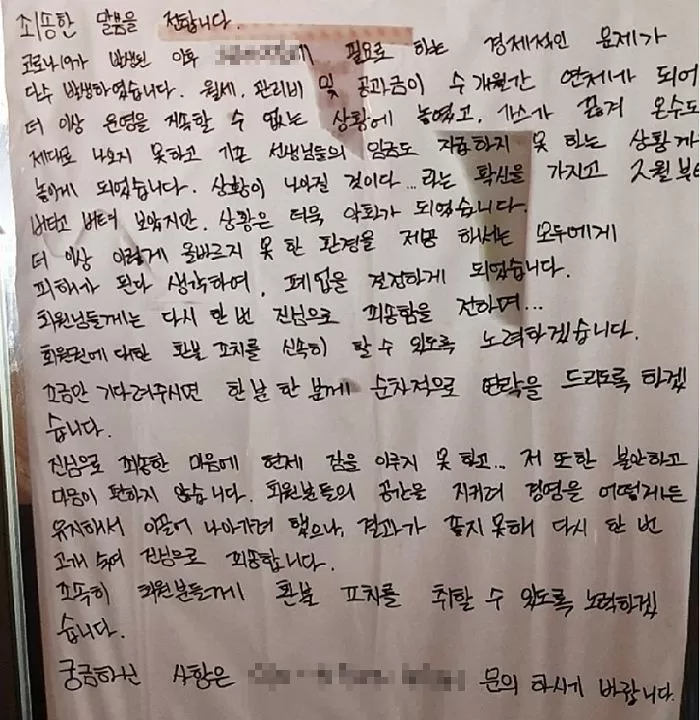 죄송한 말씀을 전합니다.
코로나19가 발생된 이후 필요로 하는 경제적인 문제가
다수 발생하였습니다. 월세, 관리비 및 공과금이 수 개월간 연체가 되어
더 이상 운영을 지속할 수 없는 상황에 놓였고, 가스가 끊겨 온수도
제대로 나오지 못하고 기존 선생님들의 임금도 지급하지 못 하는 상황까
놓이게 되었습니다. 상황이 나아질 것이다...라는 확신을 가지고 2월부터
버티고 버텨 보았지만, 상황은 더욱 악화가 되었습니다.
더 이상 이렇게 올바르지 못 한 환경을 제공 하여서는 모두에게
피해가 된다 생각하여, 폐업을 결정하게 되었습니다.
회원님들께는 다시 한 번 진심으로 죄송함을 전하며...
회원권에 대한 환불 조치를 신속히 할 수 있도록 노력하겠습니다.
조금만 기다려주시면 한 분 한 분께 순차적으로 연락을 드리도록 하겠
습니다.
진심으로 죄송한 마음에 현재 잠을 이루지 못 하고... 저 또한 불안하고
마음이 편하지 않습니다. 회원분들의 공간을 지키려 경영을 어떻게든
유지하여서 이끌어 나아가려 했으나, 결과가 좋지못해 다시 한 번
고개 숙여 진심으로 죄송합니다.
조속히 회원분들께 환불 조치를 취할 수 있도록 노력하겠
습니다.
궁금하신 사항은 문의 하시기 바랍니다.